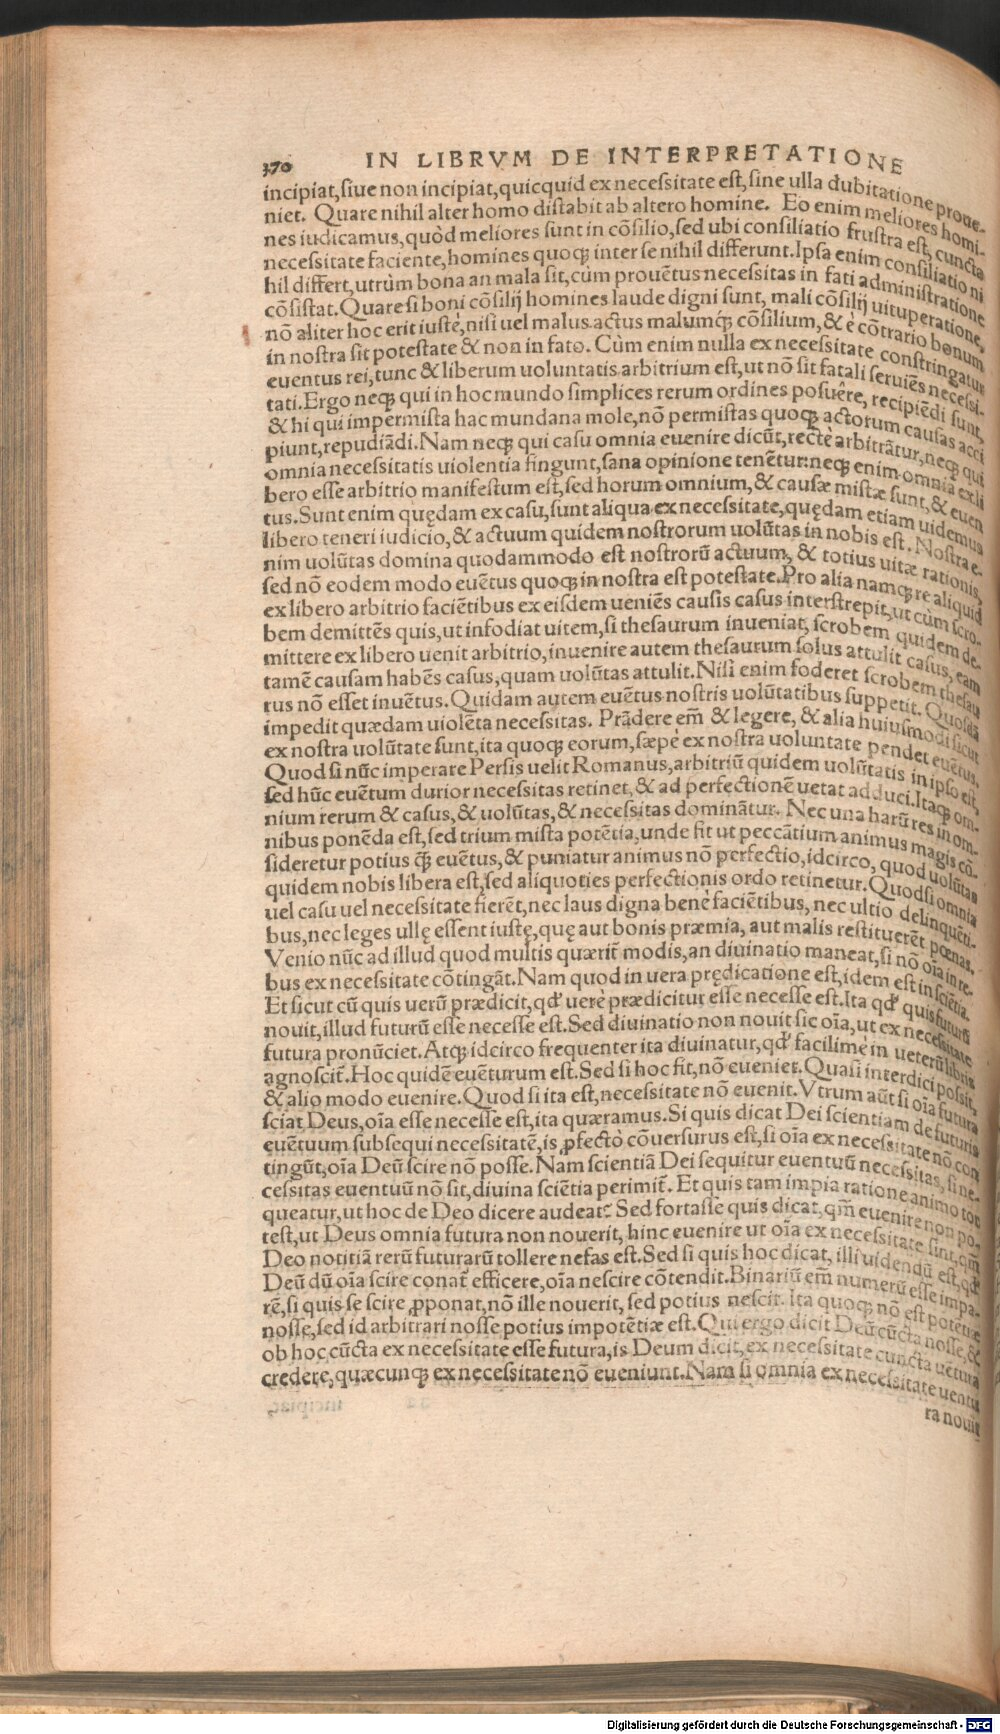 370 IN LIBRVM DE INTERPRETATIONE
incipiat, siue non incipiat, quicquid ex necessitate est, sine ulla dubitatione proue-
niet. Quare nihil alter homo distabit ab altero homine. Eo enim meliores homi-
nes iudicamus, quòd meliores sunt in cõsilio, sed ubi consiliatio frustra est, cuncta
necessitate faciente, homines quoq; inter se nihil differunt. Ipsa enim consiliatio ni
hil differt, utrùm bona an mala sit, cùm prouẽtus necessitas in fati administratione
cõsistat. Quare si boni cõsilij homines laude digni sunt, mali cõsilij uituperatione,
nõ aliter hoc erit iustè, nisi uel malus actus malumq; cõsilium, & è cõtrario bonum
in nostra sit potestate & non in fato. Cùm enim nulla ex necessitate constringatur
euentus rei, tunc & liberum uoluntatis arbitrium est, ut nõ sit fatali seruiẽs necessi-
tati. Ergo neq; qui in hoc mundo simplices rerum ordines posuêre, recipiẽdi sunt,
& hi qui impermista hac mundana mole, nõ permistas quoq; actorum causas acci
piunt, repudiãdi. Nam neq; qui casu omnia euenire dicũt, rectè arbitrãtur, neq; qui
omnia necessitatis uiolentia fingunt, sana opinione tenẽtur: neq; enim omnia ex li
bero esse arbitrio manifestum est, sed horum omnium, & causæ mistæ sunt, & euen
tus. Sunt enim quędam ex casu, sunt aliqua ex necessitate, quędam etiam uidemus
libero teneri iudicio, & actuum quidem nostrorum uolũtas in nobis est. Nostra e-
nim uolũtas domina quodammodo est nostrorũ actuum, & totius uitæ rationis,
sed nõ eodem modo euẽtus quoq; in nostra est potestate. Pro alia namq; re aliquid
ex libero arbitrio faciẽtibus ex eisdem ueniẽs causis casus interstrepit, ut cùm scro-
bem demittẽs quis, ut infodiat uitem, si thesaurum inueniat, scrobem quidem de-
mittere ex libero uenit arbitrio, inuenire autem thesaurum solus attulit casus, eam
tamẽ causam habẽs casus, quam uolũtas attulit. Nisi enim foderet scrobem thesau
rus nõ esset inuẽtus. Quidam autem euẽtus nostris uolũtatibus suppetit. Quosdã
impedit quædam uiolẽta necessitas. Prãdere em̃ & legere, & alia huiusmodi sicut
ex nostra uolũtate sunt, ita quoq; eorum, sæpè ex nostra uoluntate pendet euẽtus.
Quod si nũc imperare Persis uelit Romanus, arbitriũ quidem uolũtatis in ipso est,
sed hũc euẽtum durior necessitas retinet, & ad perfectionẽ uetat adduci. Itaq; om-
nium rerum & casus, & uolũtas, & necessitas dominãtur. Nec una harũ res in om-
nibus ponẽda est, sed trium mista potẽtia, unde fit ut peccãtium animus magis cõ-
sideretur potius q̃ euẽtus, & puniatur animus nõ perfectio, idcirco, quod uolũtas
quidem nobis libera est, sed aliquoties perfectionis ordo retinetur. Quod si omnia
uel casu uel necessitate fierẽt, nec laus digna benè faciẽtibus, nec ultio delinquẽti-
bus, nec leges ullę essent iustę, quę aut bonis præmia, aut malis restituerẽt pœnas.
Venio nũc ad illud quod multis quærit᷑ modis, an diuinatio maneat, si nõ oĩa in re-
bus ex necessitate cõtingãt. Nam quod in uera prędicatione est, idem est in sciẽtia.
Et sicut cũ quis uerũ prædicit, qđ uerè prædicitur esse necesse est. Ita qđ quis futurũ
nouit, illud futurũ esse necesse est. Sed diuinatio non nouit sic oĩa, ut ex necessitate
futura pronũciet. Atq; idcirco frequenter ita diuinatur, qđ facilimè in ueterũ libris
agnoscit᷑. Hoc quidẽ euẽturum est. Sed si hoc fit, nõ eueniet. Quasi interdici possit,
& alio modo euenire. Quod si ita est, necessitate nõ euenit. Vtrum aũt si oĩa futura
sciat Deus, oĩa esse necesse est, ita quæramus. Si quis dicat Dei scientiam de futuris
euẽtuum subsequi necessitatẽ, is ꝓfectò cõuersurus est, si oĩa ex necessitate nõ con
tingũt, oĩa Deũ scire nõ posse. Nam scientiã Dei sequitur euentuũ necessitas, si ne-
cessitas euentuũ nõ sit, diuina sciẽtia perimit᷑. Et quis tam impia ratione animo tor
queatur, ut hoc de Deo dicere audeat? Sed fortasse quis dicat, qm̃ euenire non po-
test, ut Deus omnia futura non nouerit, hinc euenire ut oĩa ex necessitate sint, qm̃
Deo notitiã rerũ futurarũ tollere nefas est. Sed si quis hoc dicat, illi uidendũ est, qđ
Deũ dũ oĩa scire conat᷑ efficere, oĩa nescire cõtendit. Binariũ em̃ numerũ esse impa-
rẽ, si quis se scire ꝓponat, nõ ille nouerit, sed potius nescit. Ita quoq; nõ est potẽtiæ
nosse, sed id arbitrari nosse potius impotẽtiæ est. Qui ergo dicit Deũ cũcta nosse, &
ob hoc cũcta ex necessitate esse futura, is Deum dicit, ex necessitate cuncta uẽtura
credere, quæcunq; ex necessitate nõ eueniunt. Nam si omnia ex necessitate uentu
ra nouit
Digitalisierung gefördert durch die Deutsche Forschungsgemeinschaft - DFG